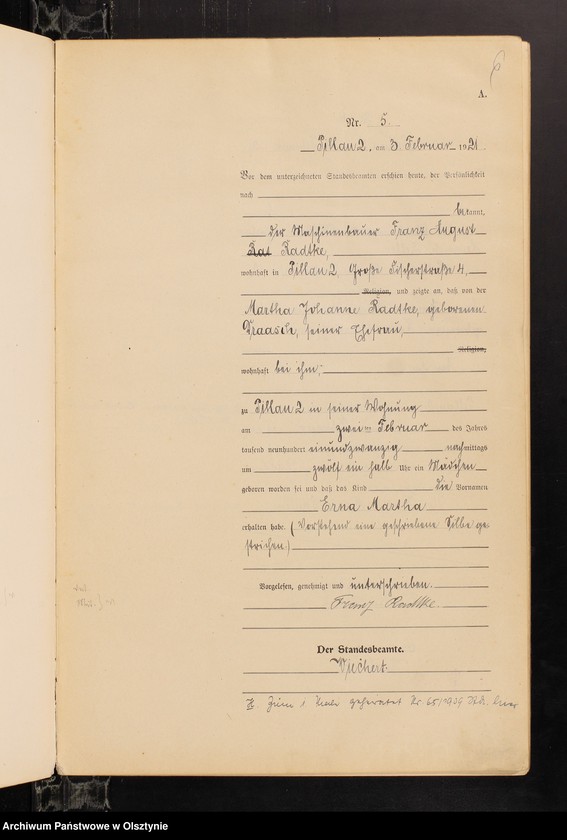 A.
Nr. 5.
Pillau 2, am 3. Februar 1921
Vor dem unterzeichneten Standesbeamten erschien heute, der Persönlichkeit
nach
bekannt,
der Maschinenbauer Franz August
Rat Radtke,
wohnhaft in Pillau 2, Große Fischerstraße 4,
Religion, und zeigte an, daß von der
Martha Johanne Radtke, geborenen
Draasch, seiner Ehefrau,
Religion,
wohnhaft bei ihm,
zu Pillau 2 in seiner Wohnung
am zwei ten Februar des Jahres
tausend neunhundert einundzwanzig nachmittags
um zwölf ein halb Uhr ein Mädchen
geboren worden sei und daß das Kind die Vornamen
Erna Martha
erhalten habe. (Vorstehend eine geschriebene Silbe ge-
strichen.)
Vorgelesen, genehmigt und unterschrieben.
Franz Radtke.
Der Standesbeamte.
Wichert.
geheiratet Nr. 65/1939
Archiwum Państwowe w Olsztynie